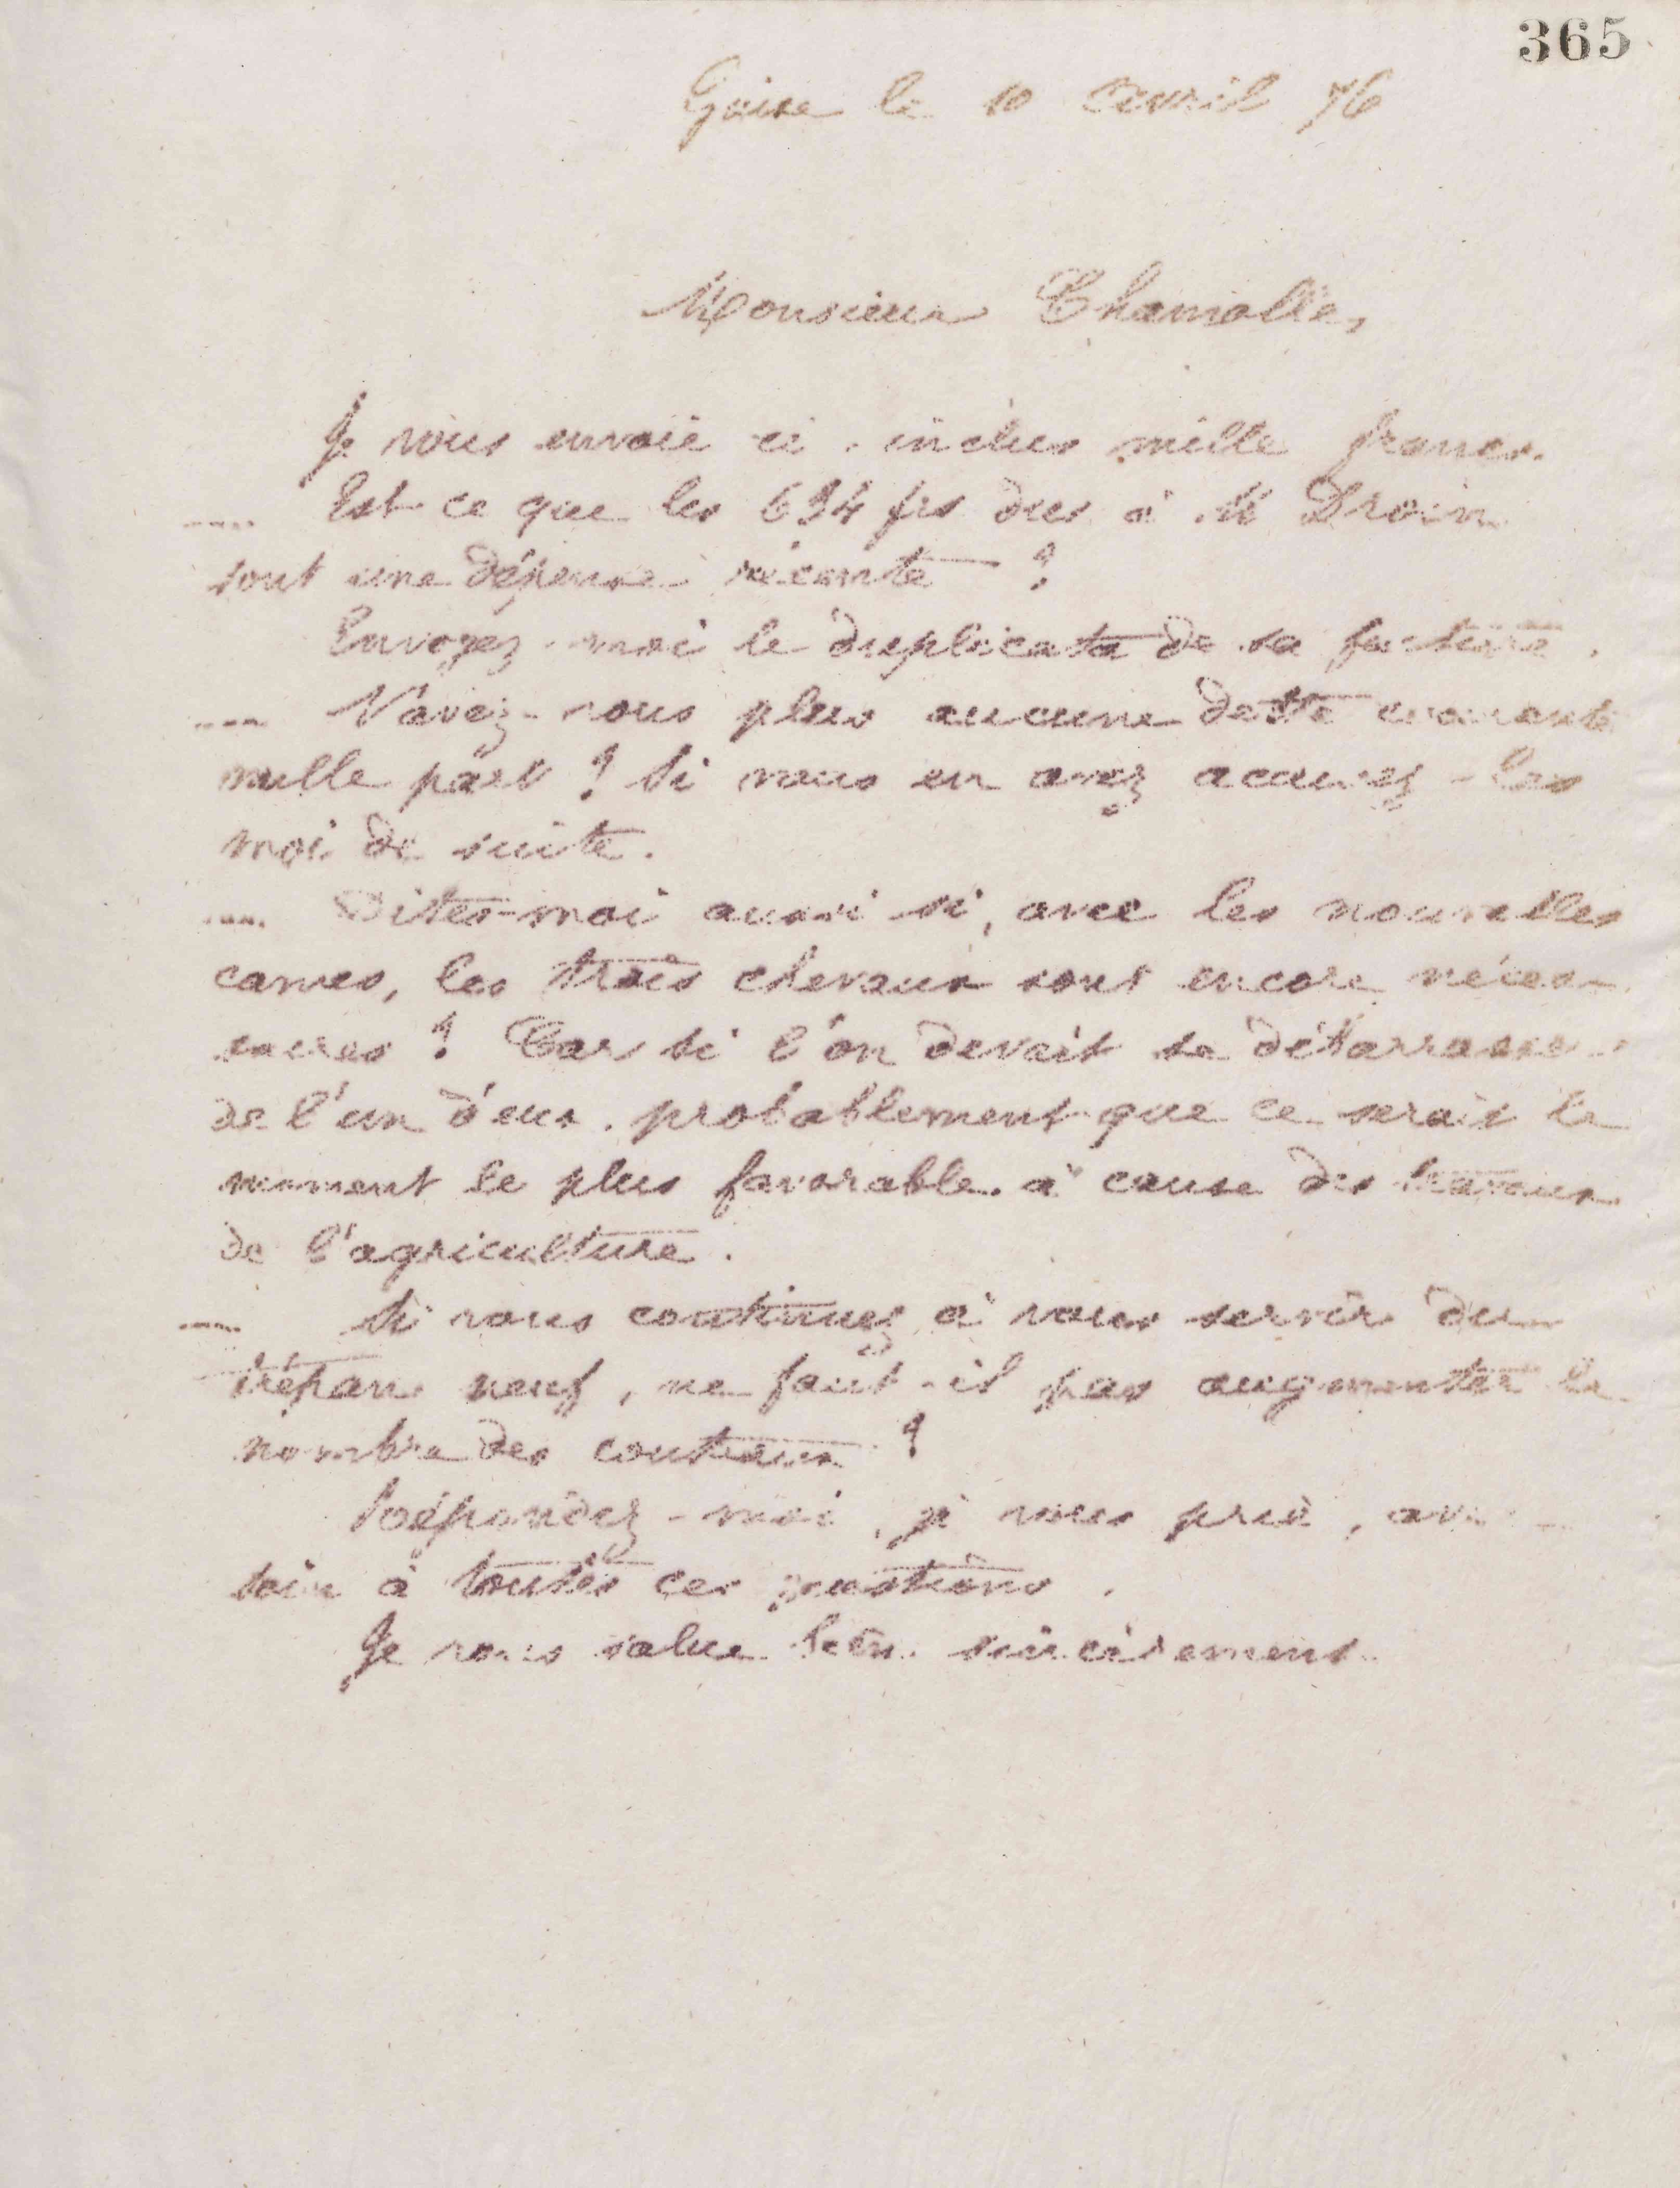 365
Guise le 10 Avril 76
Monsieur Chamolle,
Je vous envoie ci-inclus mille francs.
Est ce que les 694 frs dus à M Drouin
sont une dépense récente ?
Envoyez-moi le duplicata de sa facture.
N'avez-vous plus aucune dette courante
nulle part ? Si vous en avez accusez-les
moi de suite.
Dites-moi aussi si, avec les nouvelles
cames, les trois chevaux sont encore néces-
saires ? Car si l'on devait se débarrasser
de l'un d'eux, probablement que ce serait le
moment le plus favorable, à cause des travaux
de l'agriculture.
Si vous continuez à vous servir du
trépan neuf, ne faut-il pas augmenter le
nombre des couteaux ?
Répondez-moi, je vous prie, avec
soin à toutes ces questions.
Je vous salue bien sincèrement.